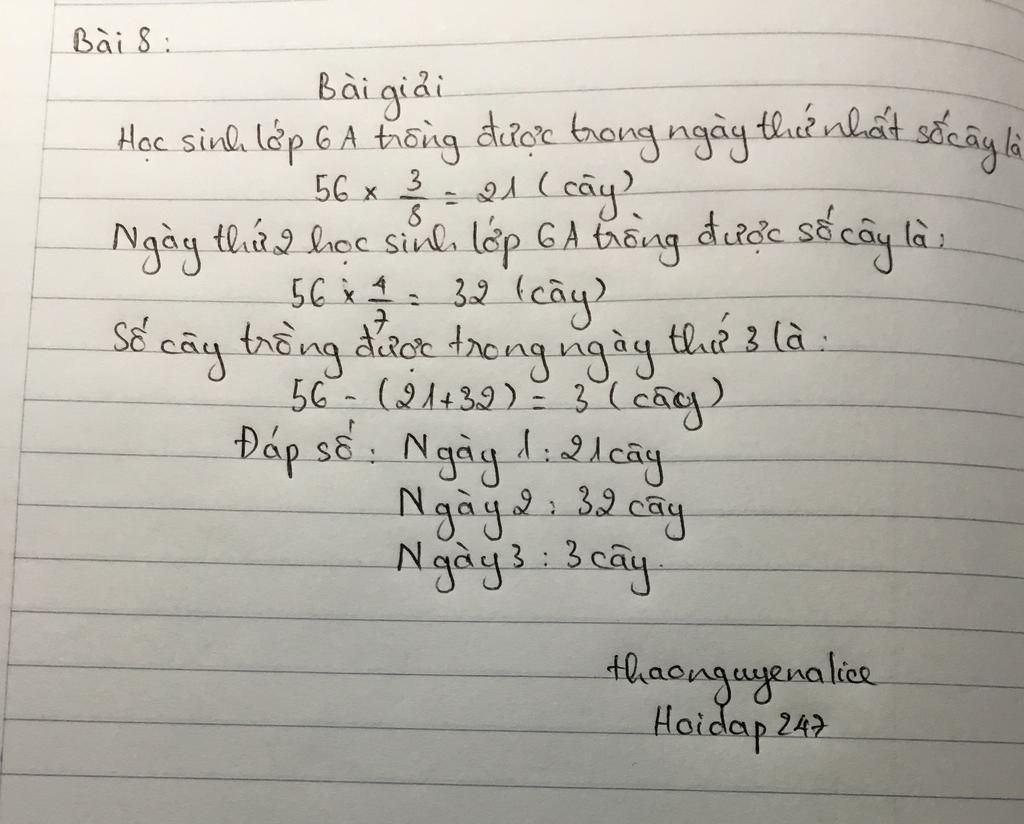 Bài 8:
Bài giải
Học sinh lớp 6A trồng được trong ngày thứ nhất số cây là
56 × 3/8 = 21 (cây)
Ngày thứ 2 học sinh lớp 6A trồng được số cây là:
56 × 4/7 = 32 (cây)
Số cây trồng được trong ngày thứ 3 là:
56 - (21+32) = 3 (cây)
Đáp số: Ngày 1: 21 cây
Ngày 2: 32 cây
Ngày 3: 3 cây.
thaonguyenalice
Hoidap247